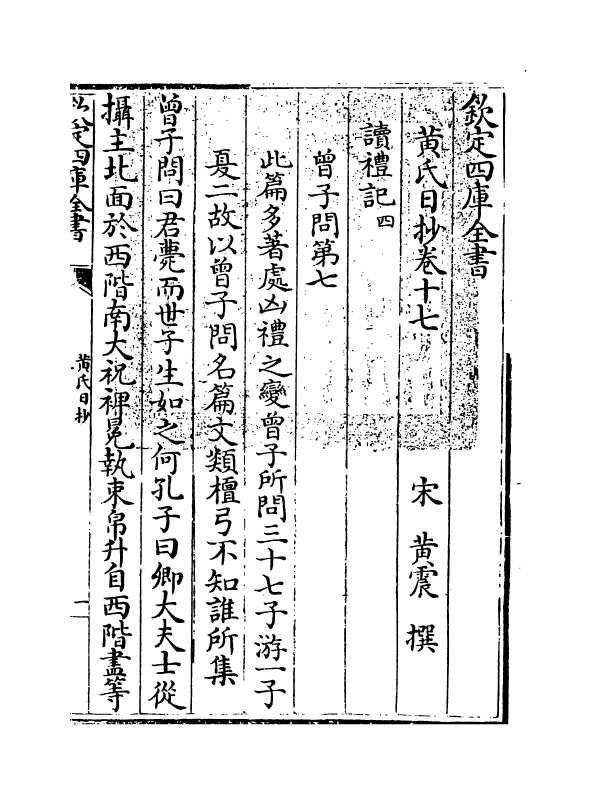 欽定四庫全書
黃氏日抄卷十七
宋 黃震 撰
讀禮記四
曾子問第七
此篇多著處凶禮之變曾子所問三十七子游一子
夏二故以曾子問名篇文類檀弓不知誰所集
曾子問曰君薨而世子生如之何孔子曰卿大夫士從
攝主北面於西階南大祝裨冕執束帛升自西階盡等
欽定四庫全書
黃氏日抄
一